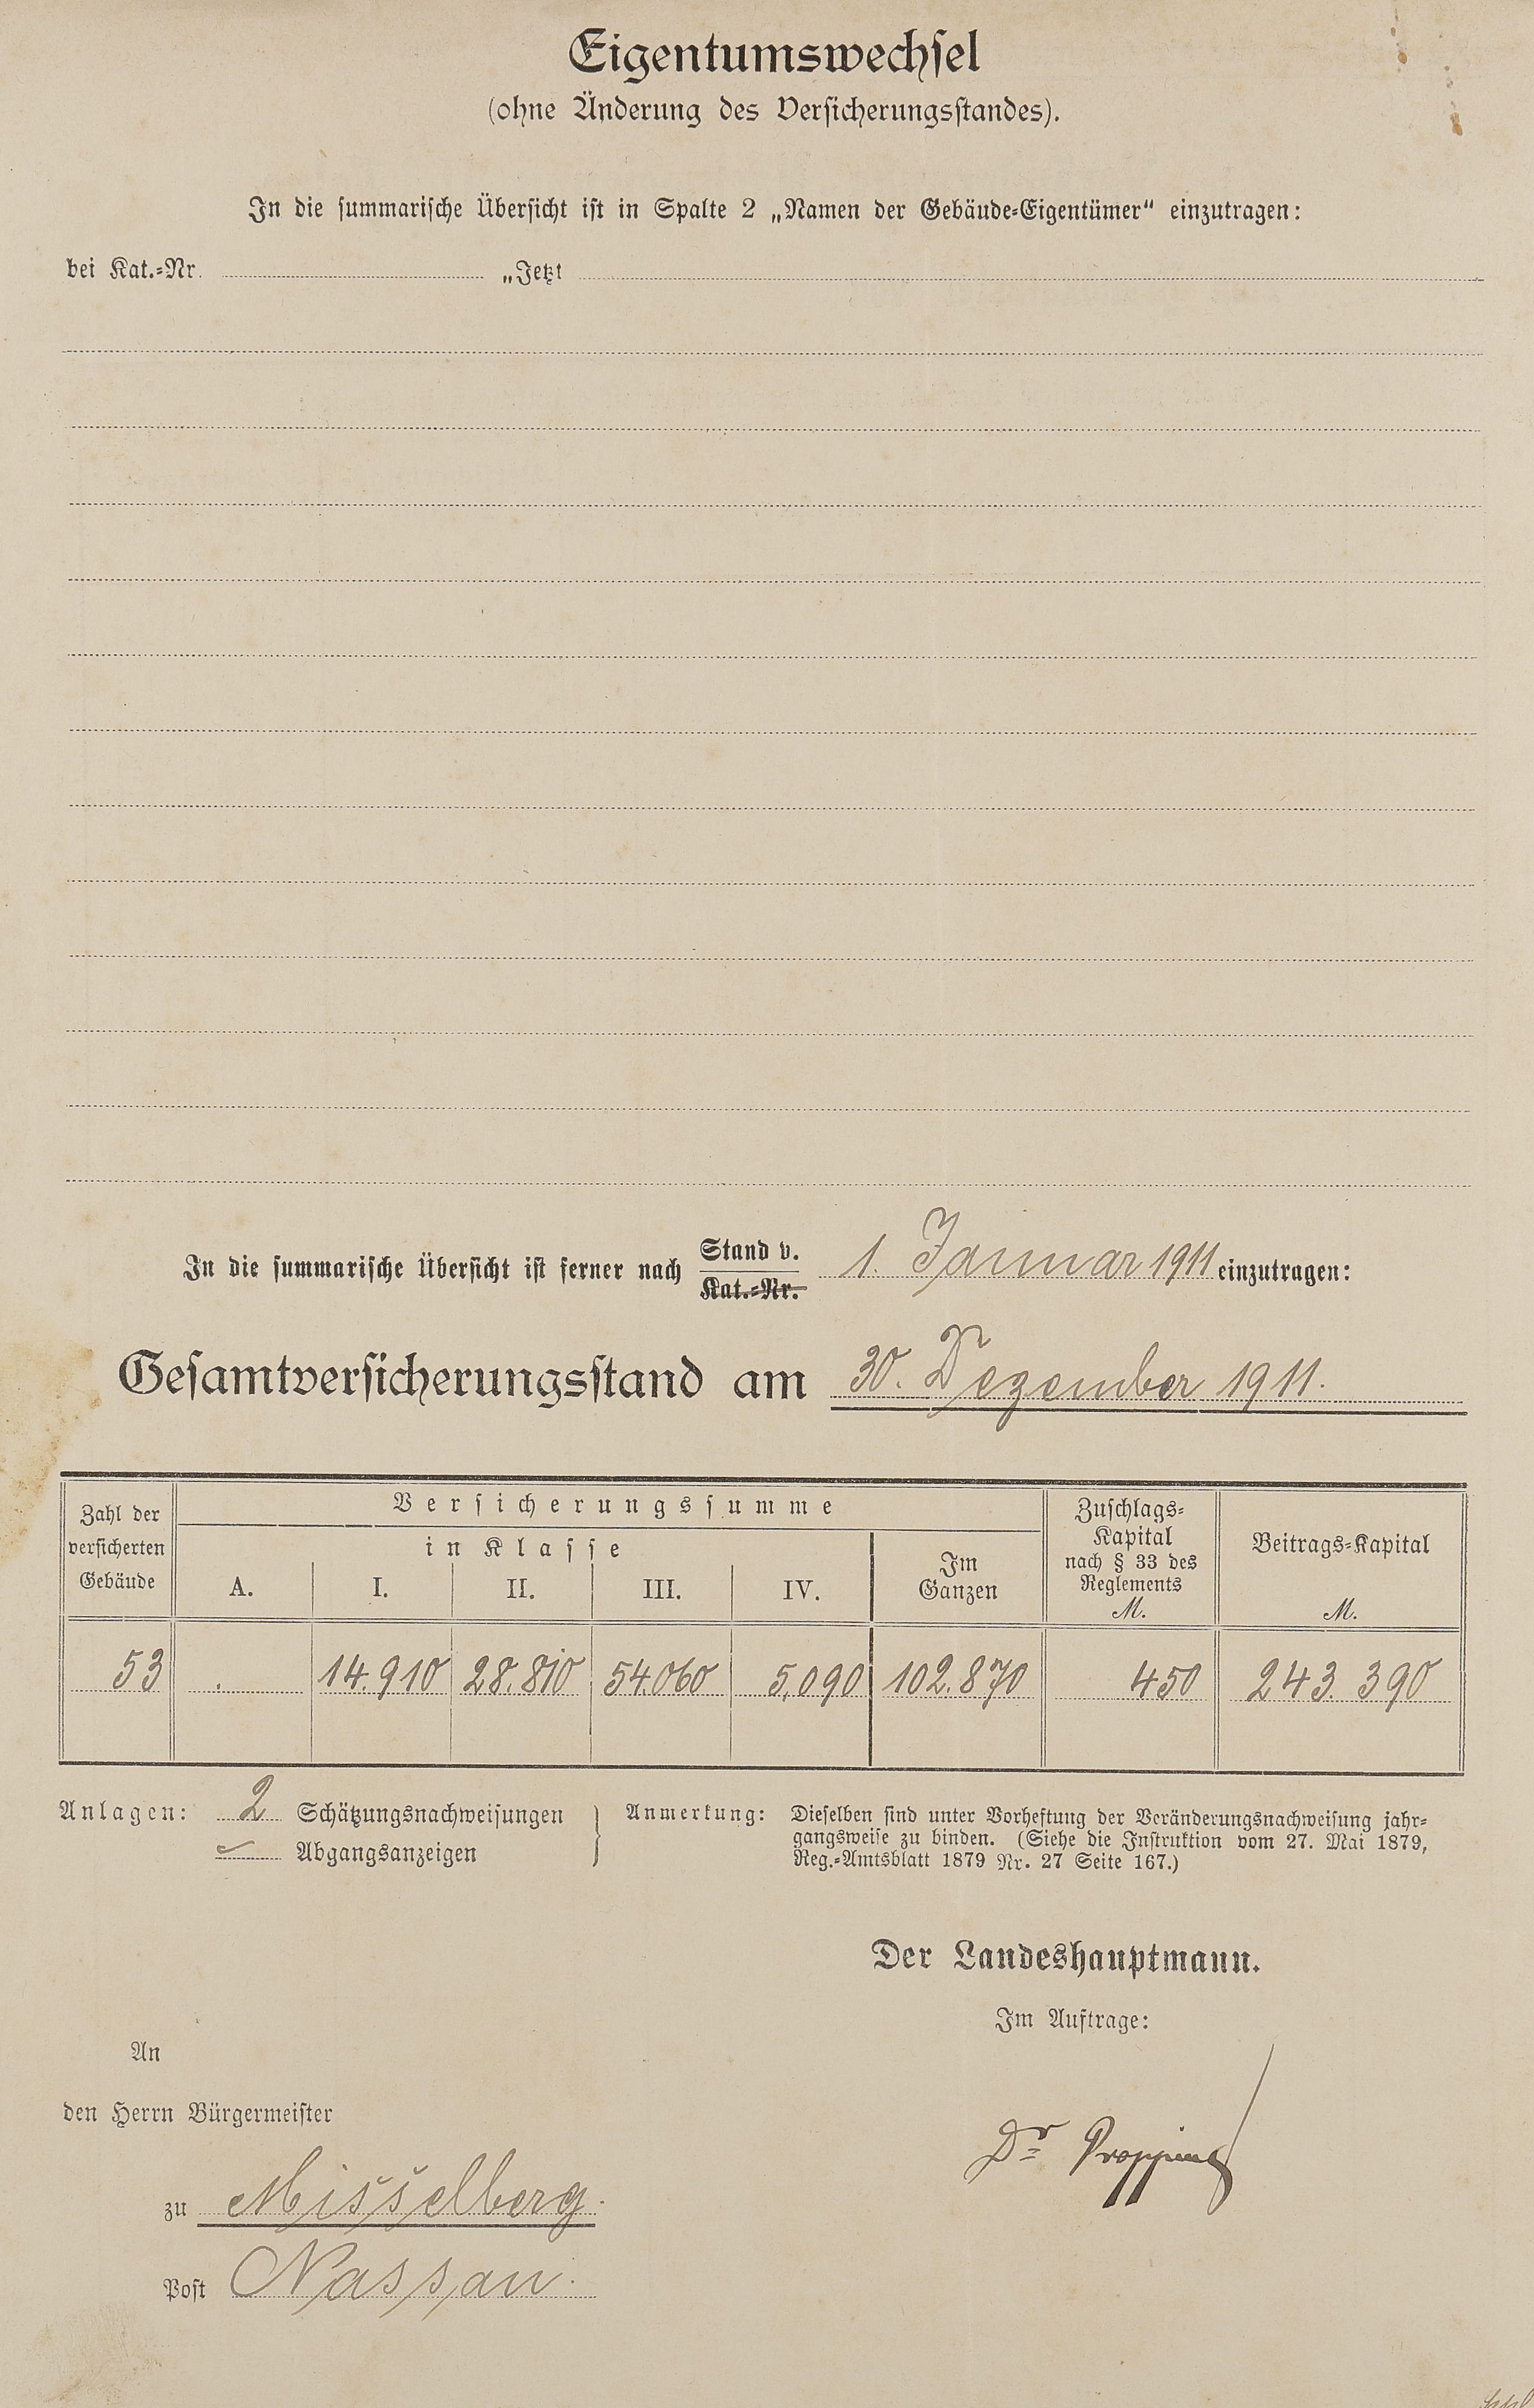 Eigentumswechsel
(ohne Änderung des Versicherungsstandes).
In die summarische Übersicht ist in Spalte 2 „Namen der Gebäude-Eigentümer“ einzutragen:
bei Kat.-Nr. „Jetzt
In die summarische Übersicht ist ferner nach Stand v. 1. Januar 1911 einzutragen:
Kat.-Nr.
Gesamtversicherungsstand am 30. Dezember 1911.
Zahl der versicherten Gebäude
Versicherungssumme
in Klasse
A. I. II. III. IV.
Im Ganzen
Zuschlags-Kapital nach § 33 des Reglements M.
Beitrags-Kapital M.
53 . 14.910 28.810 54.060 5.090 102.870 450 243.390
Anlagen: 2 Schätzungsnachweisungen
Abgangsanzeigen
Anmerkung: Dieselben sind unter Vorheftung der Veränderungsnachweisung jahr-
gangsweise zu binden. (Siehe die Instruktion vom 27. Mai 1879,
Reg.-Amtsblatt 1879 Nr. 27 Seite 167.)
Der Landeshauptmann.
Im Auftrage:
Dr Propping
An
den Herrn Bürgermeister
zu Misselberg.
Post Nassau.